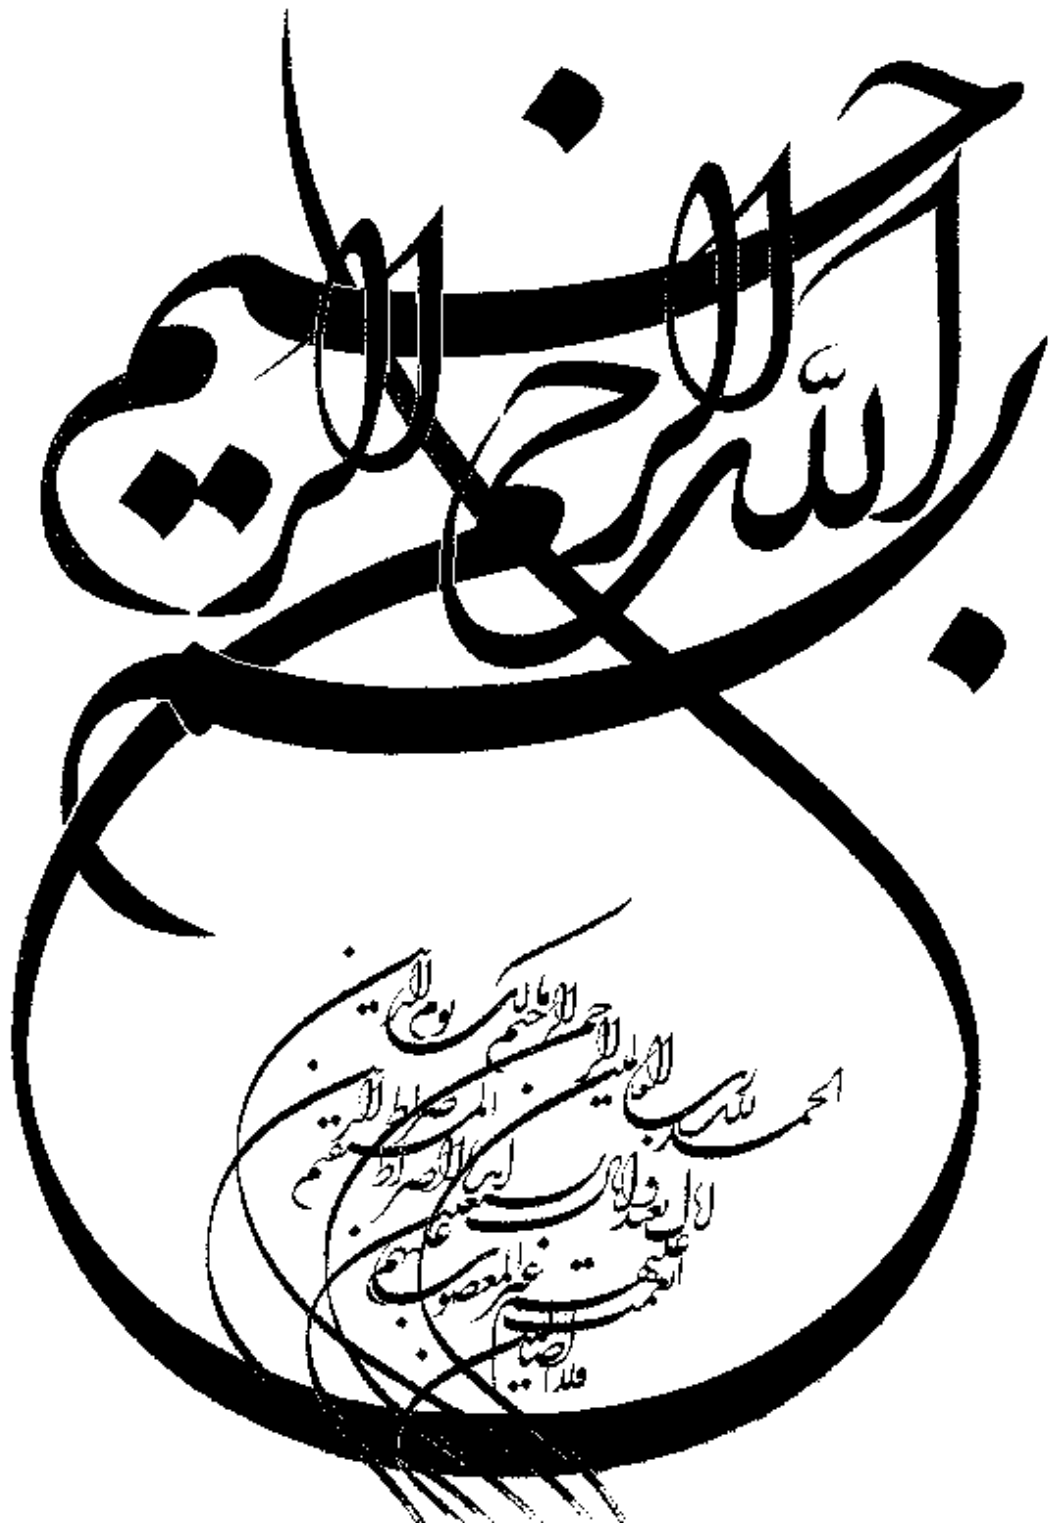 بسم الله الرحمن الرحیم
الحمد لله رب العالمین
الرحمن الرحیم مالک یوم الدین
ایاک نعبد و ایاک نستعین
اهدنا الصراط المستقیم
صراط الذین
انعمت علیهم غیر المغضوب علیهم
ولا الضالین